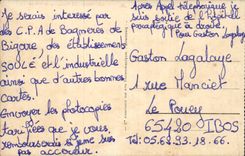 Je serais intéressé par
des C.P.A de Bagnères de
Bigorre des établissements
SOULÉ et L'industrielle
ainsi que d'autres bonnes
cartes.
Envoyer les photocopies
tarifées que je vous
rembourserais si je ne suis
pas accordeur.
Après Appel téléphonique je
suis sortie de l'Hôpital
paraplégique à
Pour Gaston Lagalaye
Gaston Lagalaye
1 rue Manciet
Le Pouey
65420 IBOS
Tél. 05.62.93.18.66.